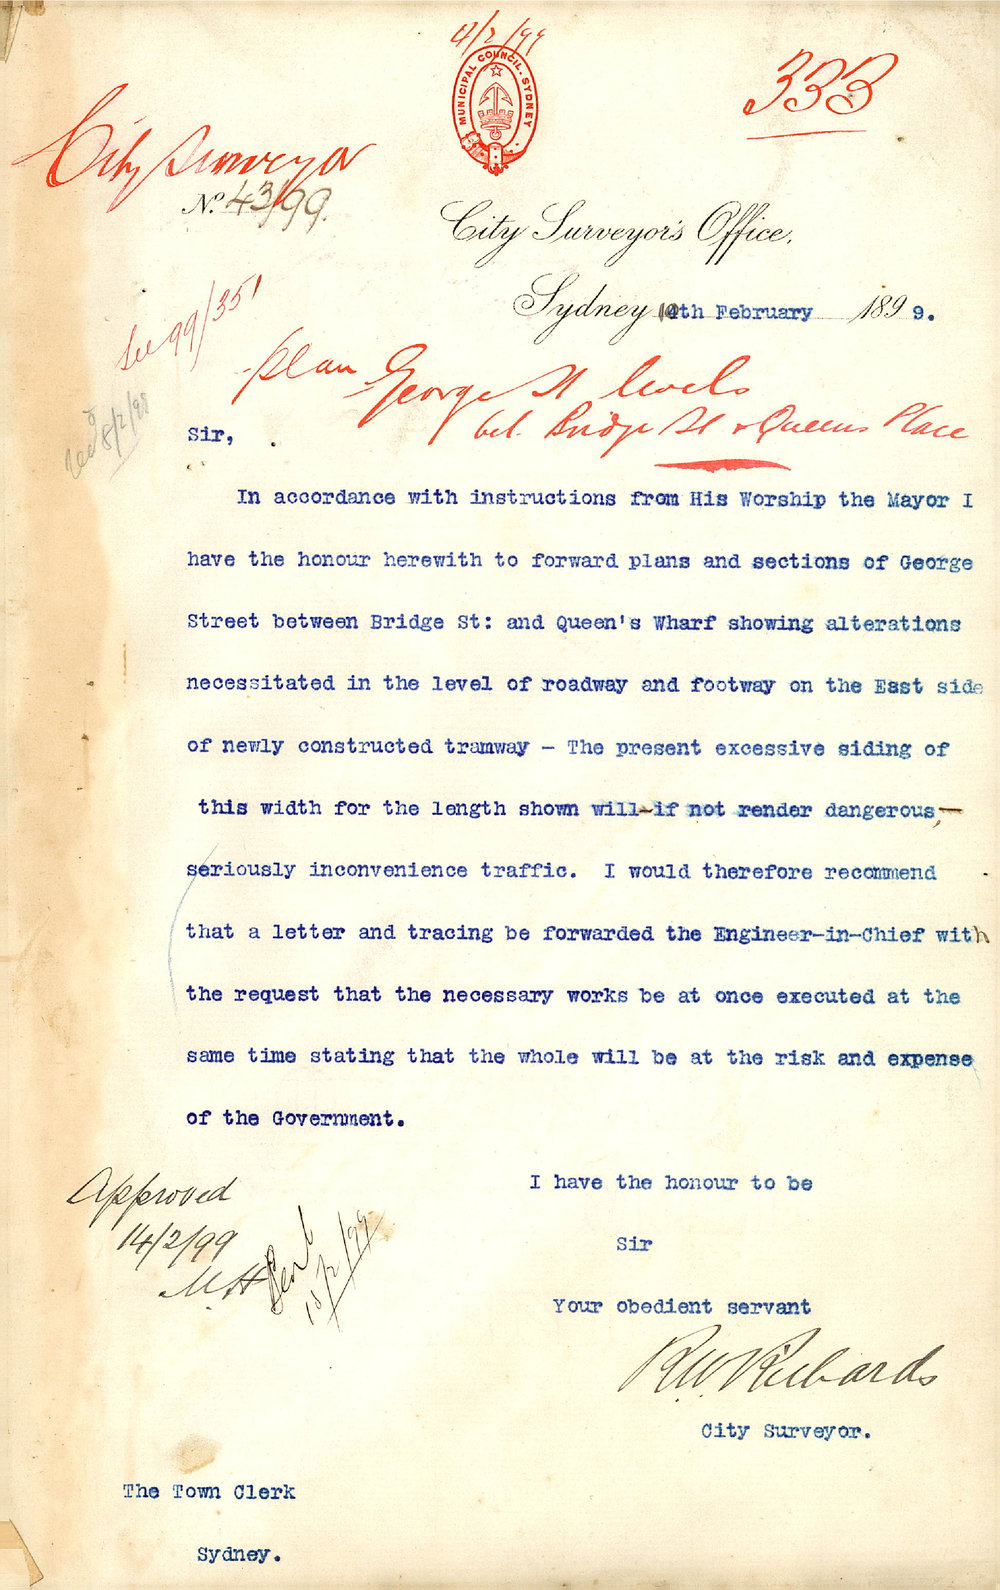 4/2/99
MUNICIPAL COUNCIL. SYDNEY
333
City Surveyor
No. 43/99.
City Surveyor's Office,
Sydney 14th February 1899.
See 99/351
plan George St levels
bet. Bridge St & Queens Place
8/2/99
Sir,
In accordance with instructions from His Worship the Mayor I
have the honour herewith to forward plans and sections of George
Street between Bridge St: and Queen's Wharf showing alterations
necessitated in the level of roadway and footway on the East side
of newly constructed tramway - The present excessive siding of
this width for the length shown will-if not render dangerous,-
seriously inconvenience traffic. I would therefore recommend
that a letter and tracing be forwarded the Engineer-in-Chief with
the request that the necessary works be at once executed at the
same time stating that the whole will be at the risk and expense
of the Government.
I have the honour to be
Sir
Your obedient servant
R.W. Richards
City Surveyor.
Approved
14/2/99
M.H
The Town Clerk
Sydney.